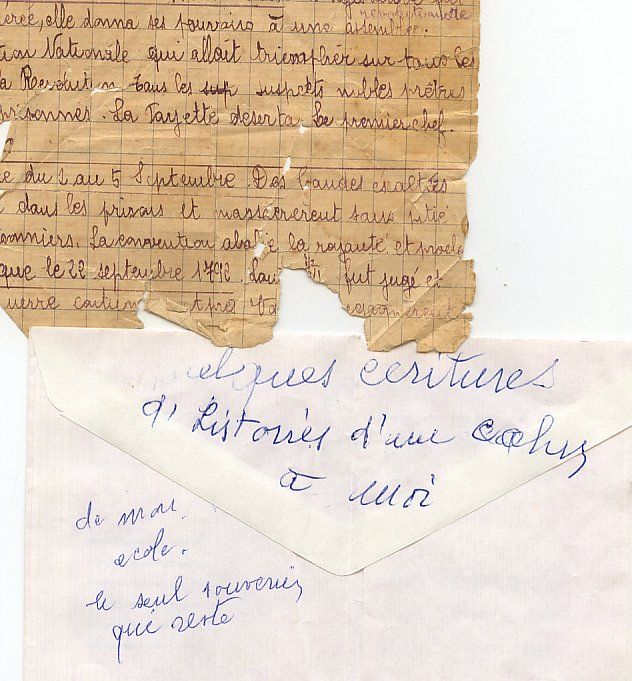 révolutionnaire
érée, elle donna ses pouvoirs à une assemblée.
tion Nationale qui allait triompher sur tous les
a Revolution tous les sup suspects nobles prêtres
prisonnés. La Fayette deserta. Le premier chef.
?
e du 2 au 5 Septembre. Des bandes éxaltées
t dans les prisons et massacrèrent sans pitié
sonniers. La convention abolie la royauté et procla
que le 22 septembre 1792. Lou fut jugé et
uerre contin après Va gagnèrent
quelques ecritures
d'Listoires d'une cahy
a moi
de mon
ecole.
le seul souvenir
qui reste